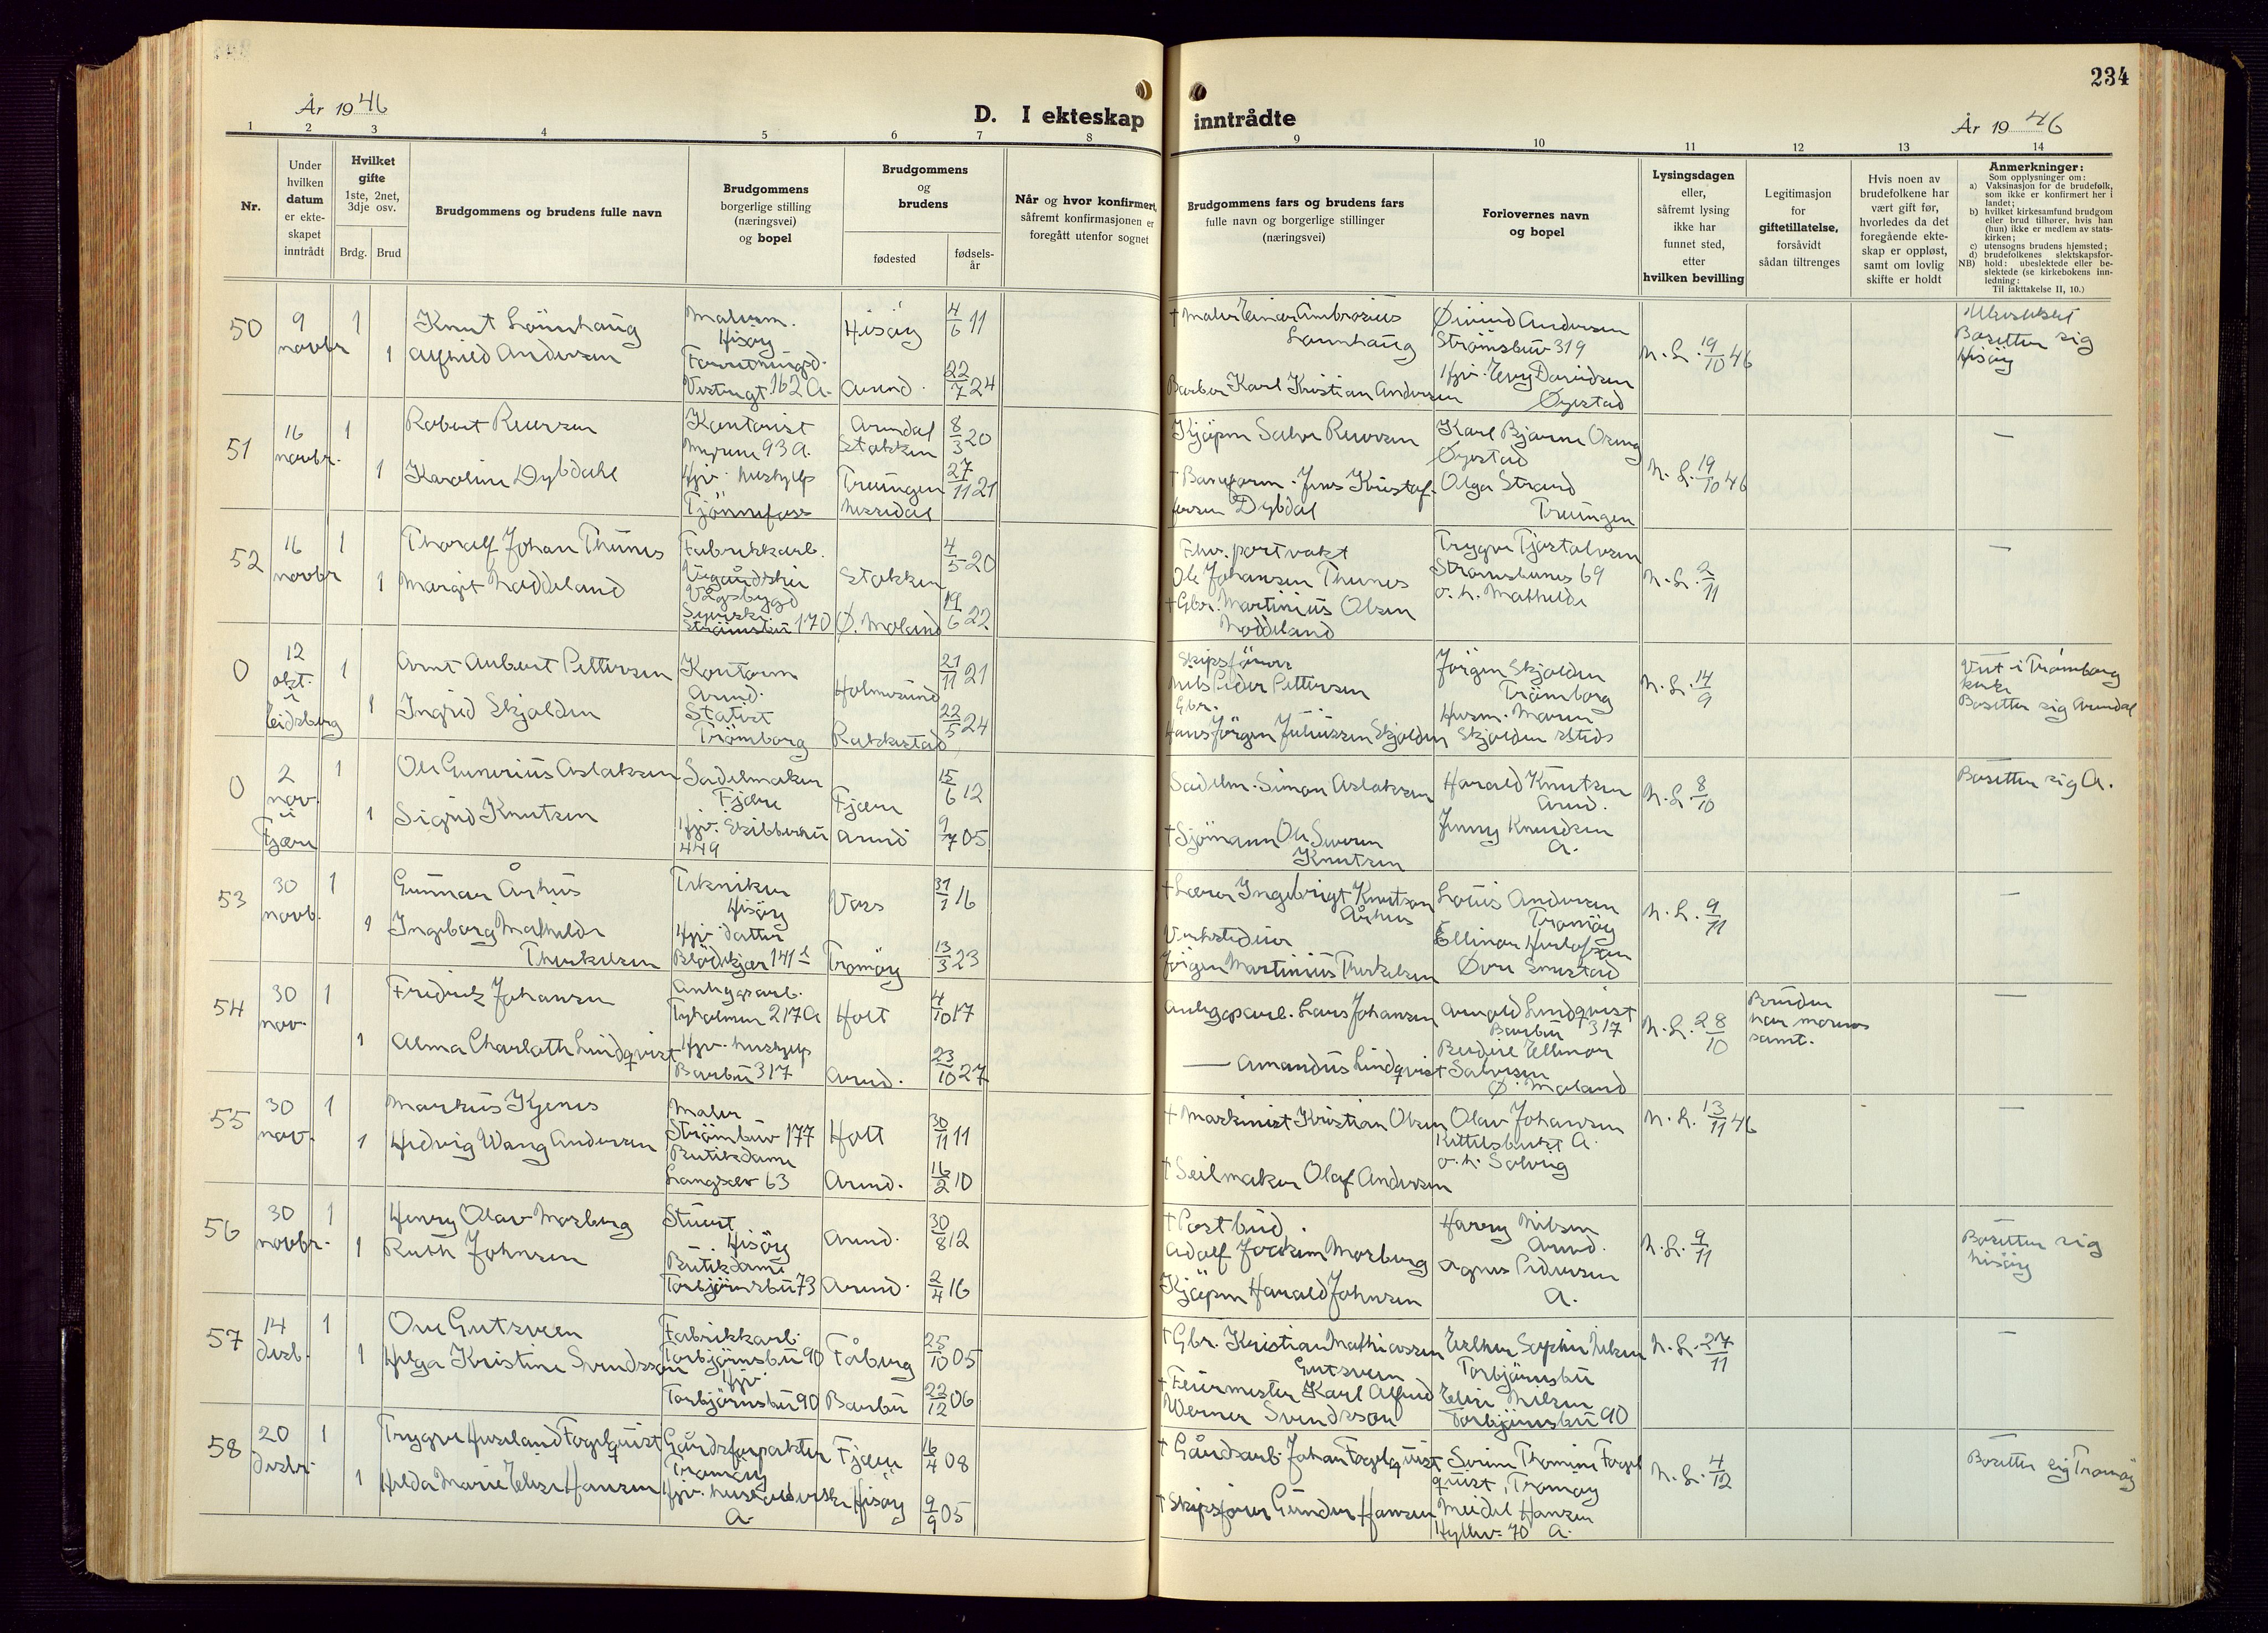 234
År 1946
D. I ekteskap inntrådte
År 1946
1 2 3 4 5 6 7 8 9 10 11 12 13 14
Nr.
Under hvilken datum er ekteskapet inntrådt
Hvilket gifte
1ste, 2net, 3dje osv.
Brdg. Brud
Brudgommens og brudens fulle navn
Brudgommens borgerlige stilling (næringsvei) og bopel
Brudgommens og brudens
fødested
fødsels-år
Når og hvor konfirmert, såfremt konfirmasjonen er foregått utenfor sognet
Brudgommens fars og brudens fars fulle navn og borgerlige stillinger (næringsvei)
Forlovernes navn og bopel
Lysingsdagen eller, såfremt lysing ikke har funnet sted, etter hvilken bevilling
Legitimasjon for giftetillatelse, forsåvidt sådan tiltrenges
Hvis noen av brudefolkene har vært gift før, hvorledes da det foregående ekteskap er oppløst, samt om lovlig skifte er holdt
Anmerkninger:
Som opplysninger om:
a) Vaksinasjon for de brudefølk, som ikke er konfirmert her i landet;
b) hvilket kirkesamfund brudgom eller brud tilhører, hvis han (hun) ikke er medlem av statskirken;
c) utensogns brudens hjemsted;
d) brudefolkenes slektskapsforhold: ubeslektede eller beslektede (se kirkebokens innledning:
NB)
Til iakttakelse II, 10.)
50 9 novbr 1 Knut Lönnhaug Malerm. Hisøy Hisöy 4/6 11
1 Alfhild Andersen Vestregt 162 A. Arend. 22/7 24
† Maler Einar Ambrosius Lønnhaug
Barber Karl Kristian Andersen
Øivind Andersen Strömsbuv 319
Hjv. Evy Davidsen Øyestad
N. L. 19/10 46
Bosetter sig Hisöy
51 16 novbr. 1 Robert Reiersen Kontorist Myrene 93 A. Arendal Stokken 8/3 20
1 Karoline Dybdahl Hjv. hushjelp Tjönnefoss Treungen Nissedal 27/11 21
Kjöpm Salve Reiersen
† Baneform. Jens Kristoffersen Dybdal
Karl Bjarne Øyestad
Olga Strand Treungen
N. L. 19/10 46
—
52 16 novbr 1 Thoralf Johan Thunes Fabrikkarb. Vågsbygd Stokken 4/5 20
1 Margit Noddeland Syerske Strömsbu 170 Ø. Moland 19/6 22
Fhv. portvakt Ole Johansen Thunes
† Gbr. Martinius Olsen Noddeland
Trygve Tjostolvsen Strømsbunes 69
o. h. Mathilde
N. L. 2/11
—
0 12 okt. i Eidsberg 1 Arnt Aubert Pettersen Kontorm Arend. Holmesund 21/11 21
1 Ingrid Skjolden Statist Trömborg Rakkestad 22/5 24
Skipsförer Nils Peder Pettersen
Gbr. Hans Jörgen Juliussen Skjolden
Jörgen Skjolden Trömborg
Husm. Maren Skjolden sisteds
N. L. 14/9
Viet i Trömborg kirke
Bosetter sig Arendal
0 2 nov. i Fjære 1 Ole Gunerius Aslaksen Sadelmaker Fjære Fjære 15/6 12
1 Sigrid Knutsen Hjv. Skibberheia 449 Arend 9/7 05
Sadelm. Simon Aslaksen
† Sjömann Ole Severin Knutsen
Harald Knutsen Arend.
Jenny Knudsen A.
N. L. 8/10
Bosetter sig A.
53 30 novb. 1 Gunnar Århus Tekniker Hisöy Voss 31/1 16
1 Ingeborg Mathilde Therkelsen Hjv. datter Blödekjær 141 Tromöy 13/3 23
† Lærer Ingebrigt Knutson Århus
Verkstedeier Jörgen Martinius Therkelsen
Louis Andersen Tromöy
Ellinor Herlofsen Øvre
N. L. 9/11
—
54 30 nov. 1 Fredrik Johansen Anleggsarb. Tyholmen 217 A Holt 4/10 17
1 Alma Charlotte Lindqvist Hjv. hushjelp Barbu 317 Arend. 23/10 27
Anleggsarb. Lars Johansen
— Amandus Lindqvist
Arnold Lindqvist Barbu 317
Ellinor Salvesen Ø. Moland
N. L. 28/10
Bruden har morens samt.
—
55 30 nov. 1 Markus Kjenes Maler Strömsbuv 177 Holt 30/11 11
1 Hedvig Wang Andersen Butikkdame Langsæv 63 Arend. 16/2 10
† Maskinist Kristian Olsen
† Seilmaker Olaf Andersen
Olav Johansen Kittelsbukt A.
o. h. Solveig
N. L. 13/11 46
—
56 30 novbr. 1 Henry Olav Morberg Stuert Hisöy Arend. 30/8 12
1 Ruth Johnsen Butikdame Torbjörnsbu 73 Arend. 2/4 16
† Postbud. Adolf Joakim Morberg
Kjöpm Harald Johnsen
Harry Nilsen Arend.
Agnes Pedersen A.
N. L. 9/11
Bosetter sig Hisöy
57 14 desb. 1 Ove Gutsveen Fabrikkarb. Torbjörnsbu 90 Fåberg 25/10 05
1 Helga Kristine Svendsson Hjv. Torbjörnsbu 90 Barbu 22/12 06
† Gbr. Kristian Mathiassen Gutsveen
† Feiermester Karl Alfred Werner Svendsson
Esther Sophie Torbjörnsbu
Elise Nilsen Torbjörnsbu 90
N. L. 27/11
—
58 20 desbr. 1 Trygve Huseland Fogelquist Gårdsforpakter Tromöy Fjære 16/4 08
1 Hilda Marie Elise Hansen Hjv. A. Hisöy 9/9 05
† Gårdsarb. Johan Fogelquist
† Skipsförer Gunder Hansen
Serine Thomine Fogelquist, Tromöy
Meidel Hansen Hyllev. 70 A.
N. L. 4/12
Bosetter sig Tromöy